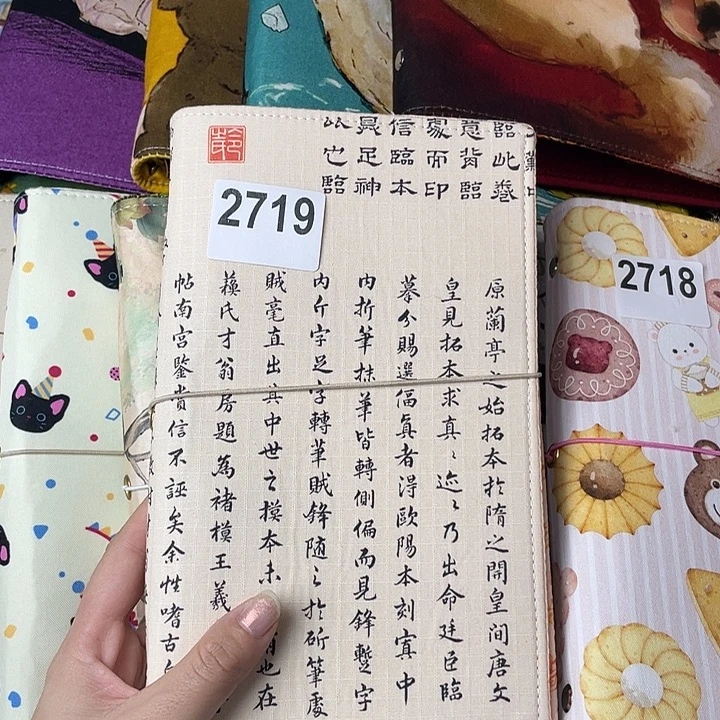 2719
2718
臨此卷
意背臨
信臨本
足神
也臨
原蘭亭之始拓本於隋之開皇間唐文
皇見拓本求真〻迹〻乃出命廷臣臨
摹分賜選偪真者淂歐陽本刻寘中
内折筆抹筆皆轉側偏而見鋒蹔字
内斤字足字轉筆賊鋒随之於斫筆處
賊毫直出其中世之模本未 也在
蘓氏才翁房題為褚模王羲
帖南宫鑒賞信不誣矣余性嗜古